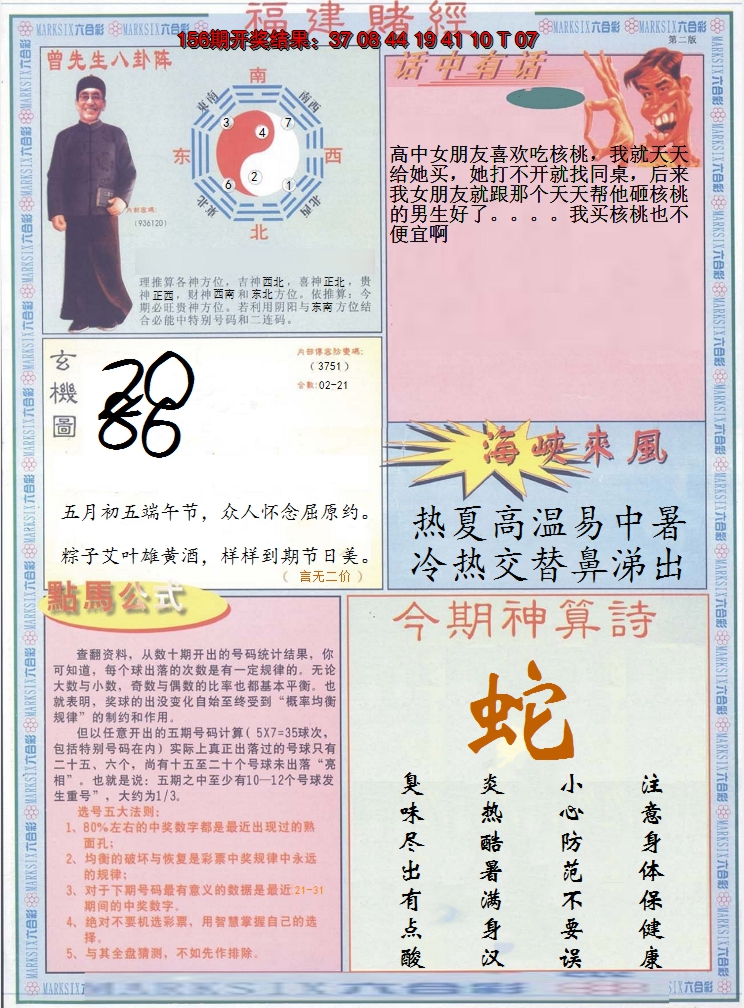 福建賭經
156期开奖结果：37 08 44 19 41 10 T 07
MARKSIX六合彩
第二版
曾先生八卦阵
南
东南
西南
3
7
4
东
西
2
6
1
东北
西北
北
内部密碼：
（936120）
理推算各神方位，吉神西北，喜神正北，贵
神正西，财神西南和东北方位。依推算：今
期必旺贵神方位。若利用阴阳与东南方位结
合必能中特别号码和二连码。
话中有话
高中女朋友喜欢吃核桃，我就天天
给她买，她打不开就找同桌，后来
我女朋友就跟那个天天帮他砸核桃
的男生好了。。。。我买核桃也不
便宜啊
玄機圖
20
86
（3751）
合数:02-21
五月初五端午节，众人怀念屈原约。
粽子艾叶雄黄酒，样样到期节日美。
（ 言无二价 ）
海峽來風
热夏高温易中暑
冷热交替鼻涕出
點馬公式
查翻资料，从数十期开出的号码统计结果，你
可知道，每个球出落的次数是有一定规律的。无论
大数与小数，奇数与偶数的比率也都基本平衡。也
就表明，奖球的出没变化自始至终受到“概率均衡
规律”的制约和作用。
但以任意开出的五期号码计算( 5X7=35球次，
包括特别号码在内) 实际上真正出落过的号球只有
二十五、六个，尚有十五至二十个号球未出落“亮
相”。也就是说：五期之中至少有10—12个号球发
生重号”，大约为1/3。
选号五大法则：
1、80%左右的中奖数字都是最近出现过的熟
面孔；
2、均衡的破坏与恢复是彩票中奖规律中永远
的规律；
3、对于下期号码最有意义的数据是最近21-31
期间的中奖数字。
4、绝对不要机选彩票，用智慧掌握自己的选
择。
5、与其全盘猜测，不如先作排除。
今期神算詩
蛇
注意身体保健康
小心防范不要误
炎热酷暑满身汉
臭味尽出有点酸